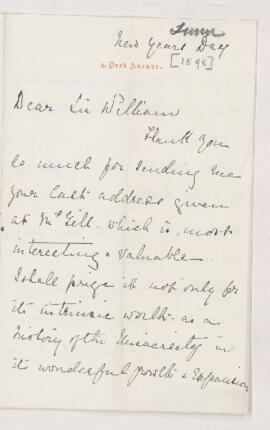 New Years Day
[1898]
6, Park Avenue.
Dear Sir William
Thank you
so much for sending me
your last address given
at McGill. which is most
interesting & valuable
I shall prize it not only for
its intrinsic worth. as a
history of the University in
its wonderful growth & Expansion